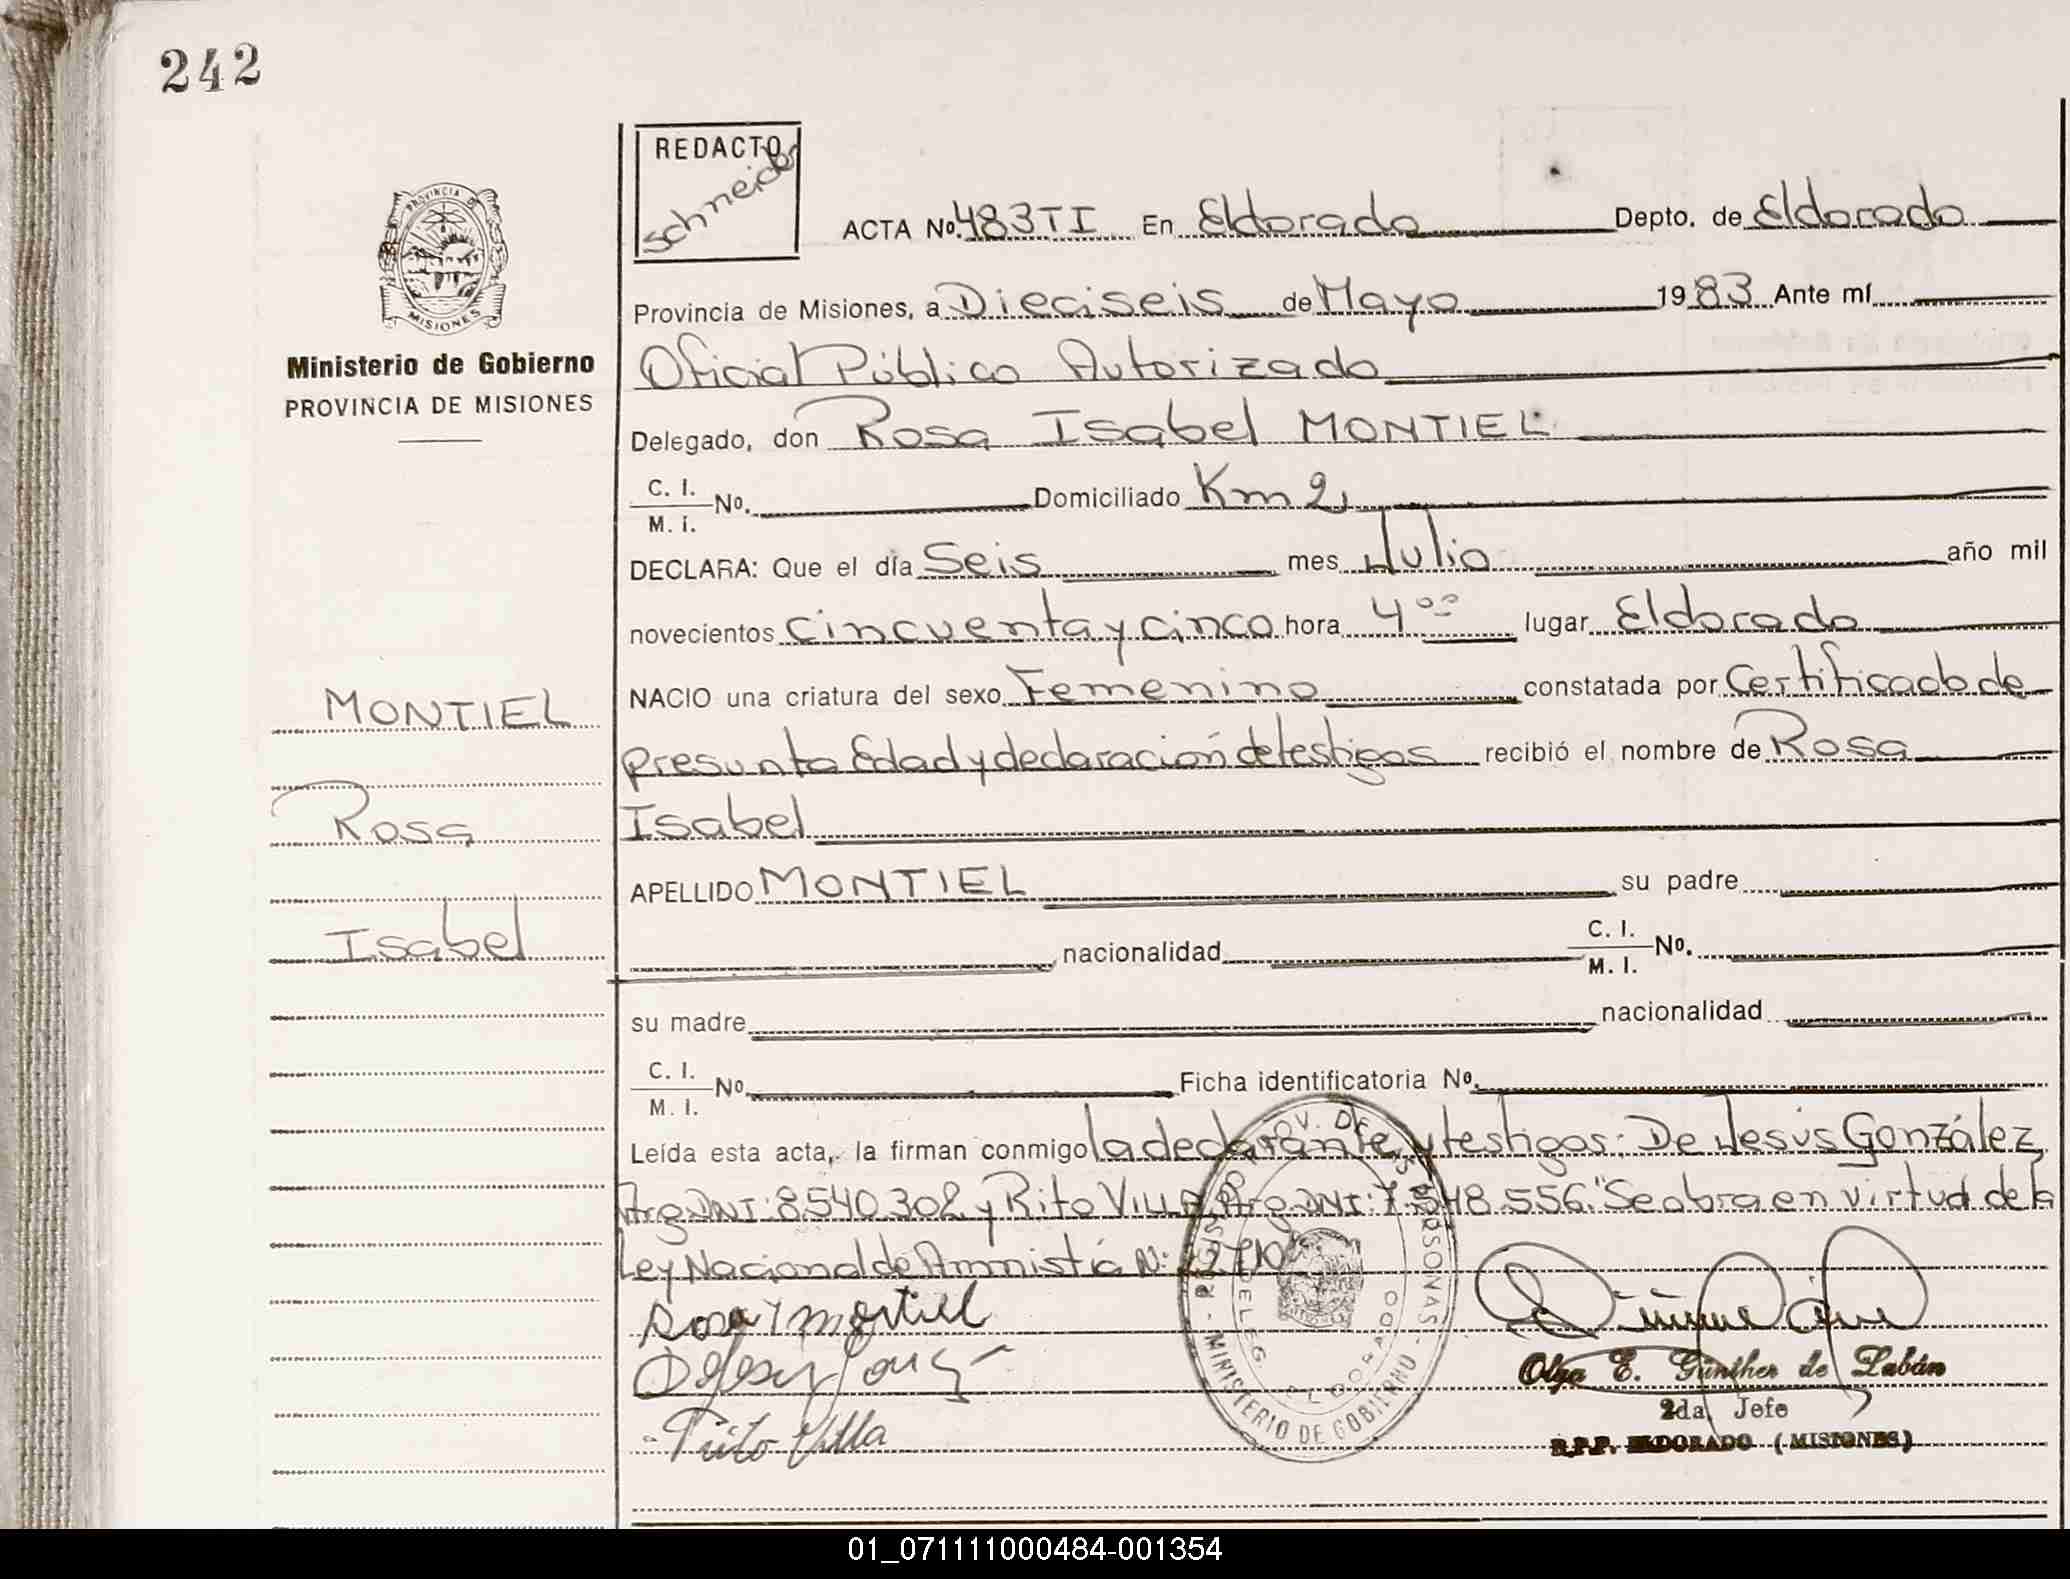 242
REDACTO
Schneider
ACTA Nº 483TI En Eldorado Depto. de Eldorado
PROVINCIA DE
MISIONES
Provincia de Misiones, a Dieciseis de Mayo 1983 Ante mí
Ministerio de Gobierno
PROVINCIA DE MISIONES
Oficial Público Autorizado
Delegado, don Rosa Isabel MONTIEL
C. I.
M. I. Nº. Domiciliado Km 2,
DECLARA: Que el día Seis mes Julio año mil
novecientos cincuenta y cinco hora 4 ºº lugar Eldorado
NACIO una criatura del sexo Femenino constatada por Certificado de
MONTIEL
presunta Edad y declaración de testigos recibió el nombre de Rosa
Rosa
Isabel
APELLIDO MONTIEL su padre
Isabel
nacionalidad C. I.
M. I. Nº.
su madre nacionalidad
C. I.
M. I. Nº. Ficha identificatoria Nº.
Leída esta acta, la firman conmigo la declarante y testigos: De Jesús González,
Arg. DNI: 8.540.302 y Rito VILLA, Arg. DNI: 7.548.556. "Se obra en virtud de la
Ley Nacional de Amnistía N: 22710
Rosa I montiel
Rito Villa
MINISTERIO DE GOBIERNO
DELEG. ELDORADO
Olga E. Günther de Labán
2da. Jefe
R.P.P. ELDORADO (MISIONES)
01_071111000484-001354